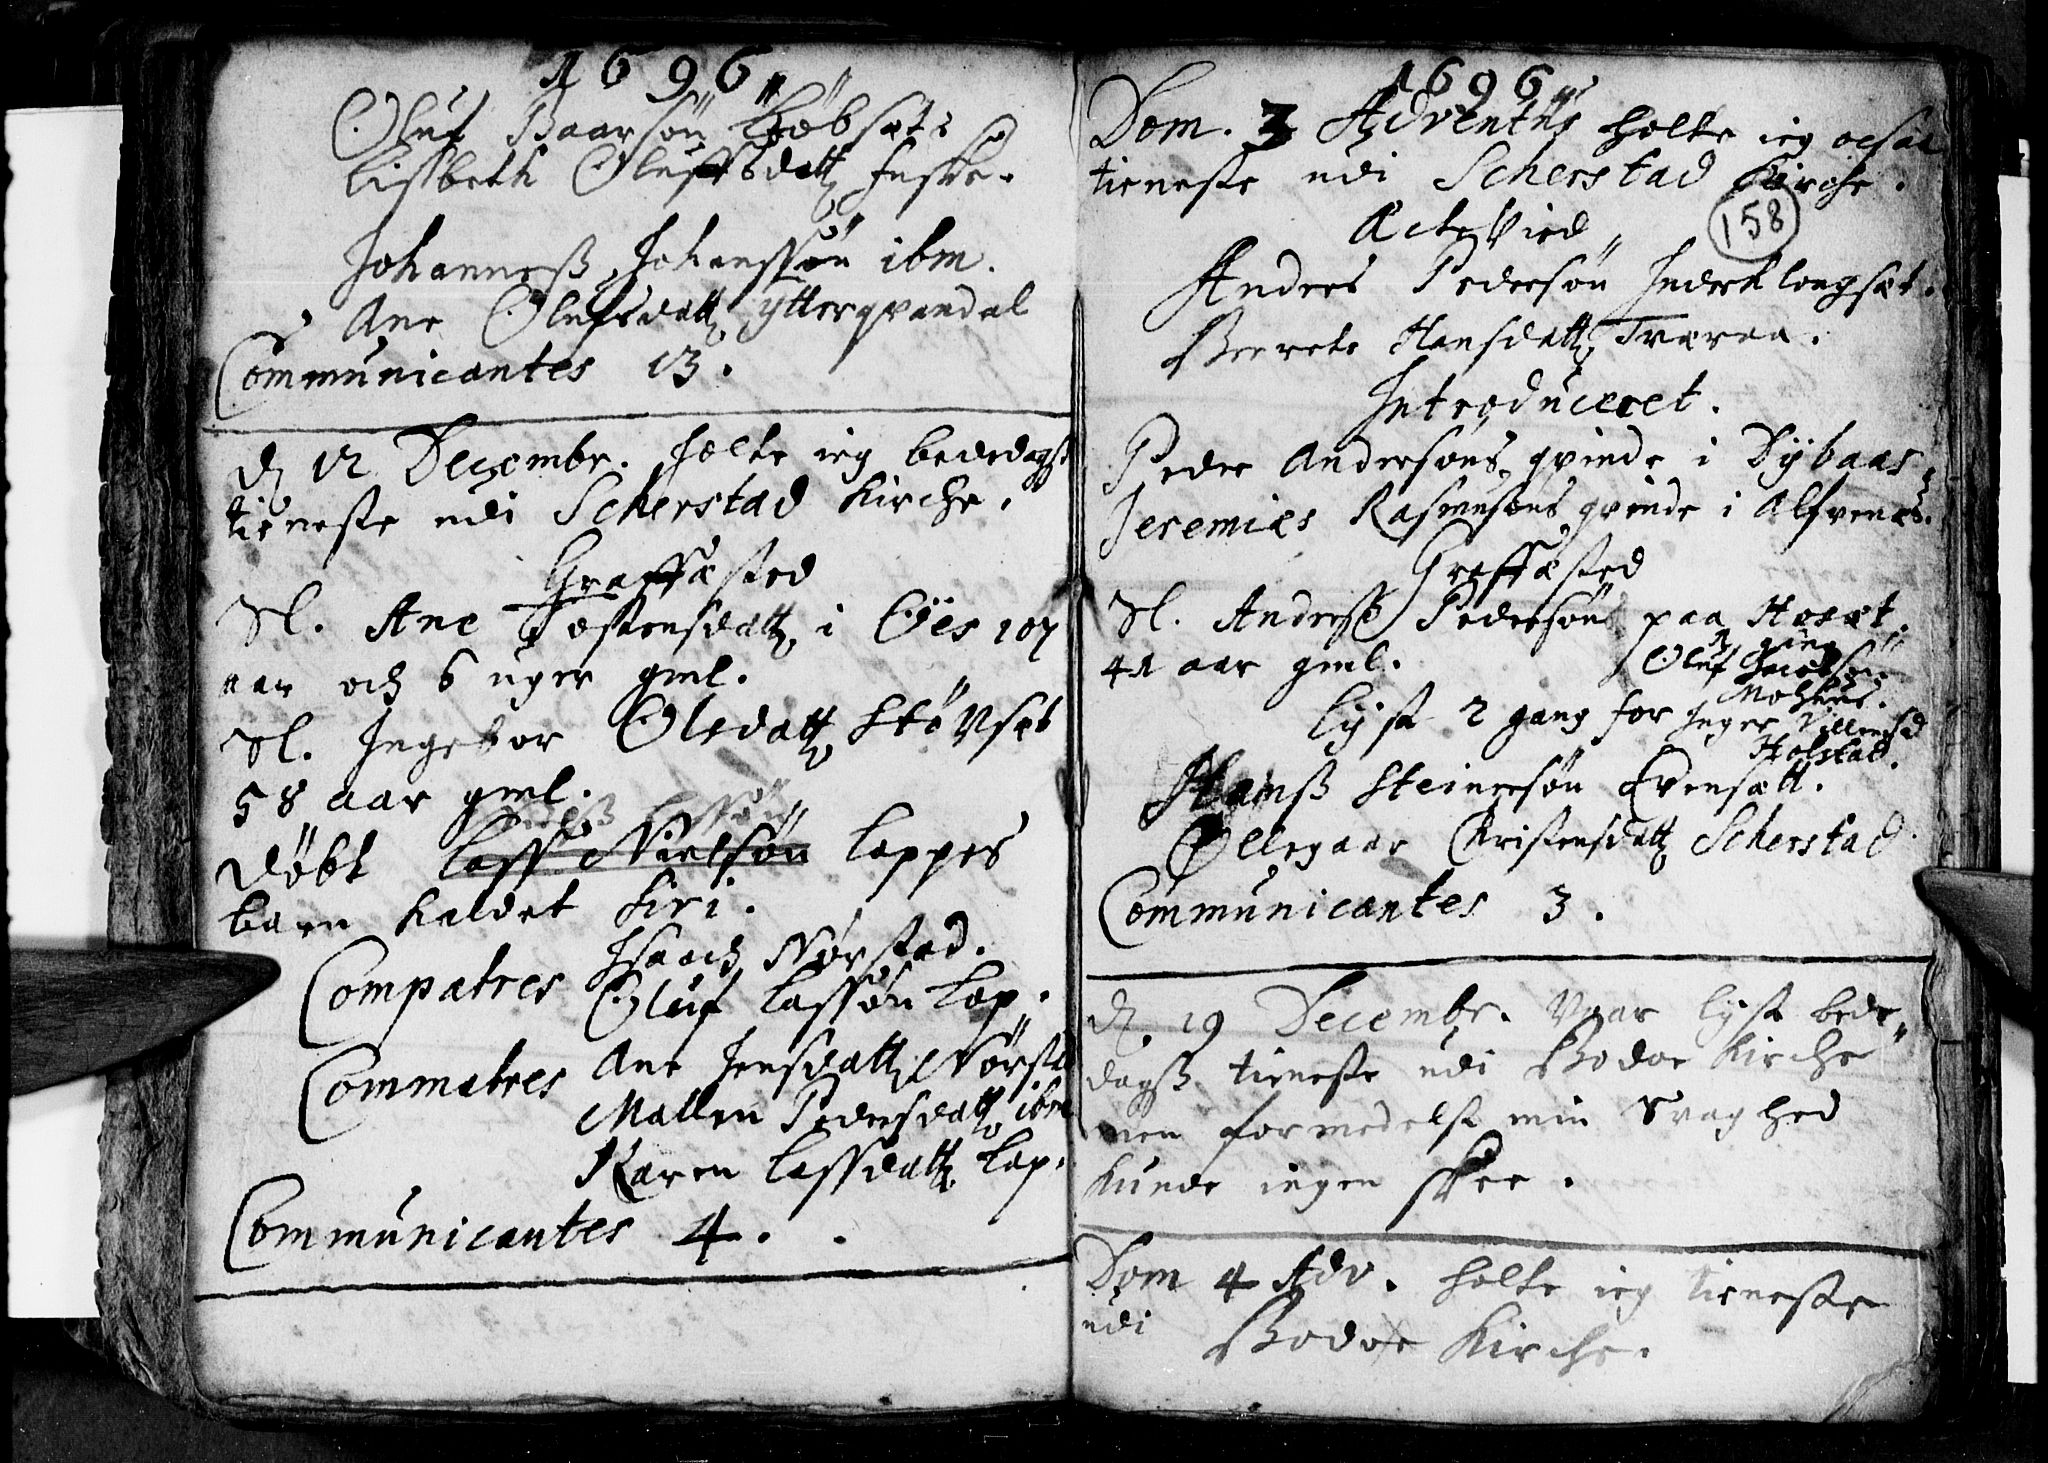 1696
Oluf Baarsøn
Lisbeth Oluffsdatt
Johanneß Johanssøn ibm.
Ane Olufsdatt ytterqvandal
Communicantes 13.
d 12 Decembr. holte ieg bededags
tieneste udi Scherstad Kirche.
Graffæsted
Sl. Ane Tostensdatt i
aar och 6 uger gml.
Sl. Ingebor Olsdatt Støvset
58 aar gml.
Døbt Lass Nielsøn Lappes
barn kaldet Siri.
Compatres Isaach Nørstad.
Oluf Lassøn Lap.
Commatres Ane Jensdatt Nørst
Mallen Pedersdatt ibm
Karen Lassdatt Lap.
Communicantes 4.
1696
Dom. 3 Adventus holte ieg ocsaa
tieneste udi Scherstad Kirche.
158
Ægte Vied
Anders Pedersøn
Beerete Hansdatt Tværaa.
Introduceret.
Peder Andersøns qvinde i Dybaas
Jeremies Rasmusøns qvinde i Alfvenæs.
Graffæsted
Sl. Anders Pedersøns paa Hosæt.
41 aar gml.
Oluf
lyst 2 gang for Inger
Holstad.
Hanß Steinersøn Evensætt.
Ellegaar Christensdatt Scherstad
Communicantes 3.
d 19 Decembr. Vaar lyst bede
dagß tieneste udi Bodøe Kirche
men formedelst min Svaghed
kunde ingen skee.
Dom 4 Adv. holte ieg tieneste
udi
Bodøe Kirche.